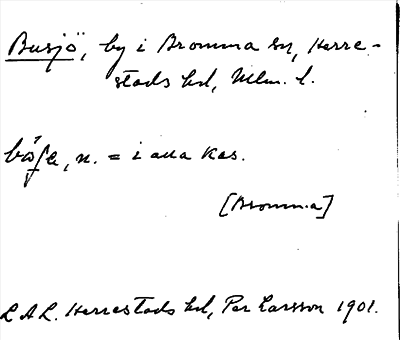 Busjö, by i Bromma sn, Herre-
stads hd, Mlm. l.
n. = i alla kas.
[Bromma]
L A L. Herrestads hd, Per Larsson 1901.